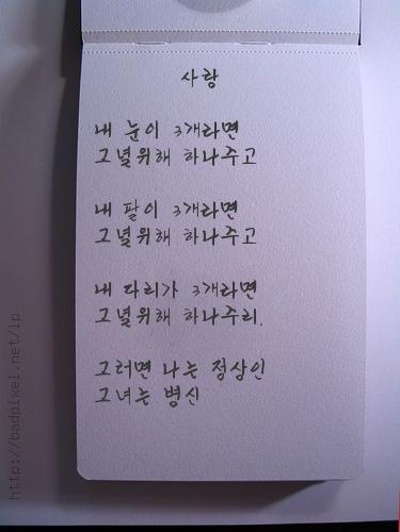 사랑
내 눈이 3개라면
그녈위해 하나주고
내 팔이 3개라면
그녈위해 하나주고
내 다리가 3개라면
그녈위해 하나주리.
그러면 나는 정상인
그녀는 병신
http://badpixel.net/lp